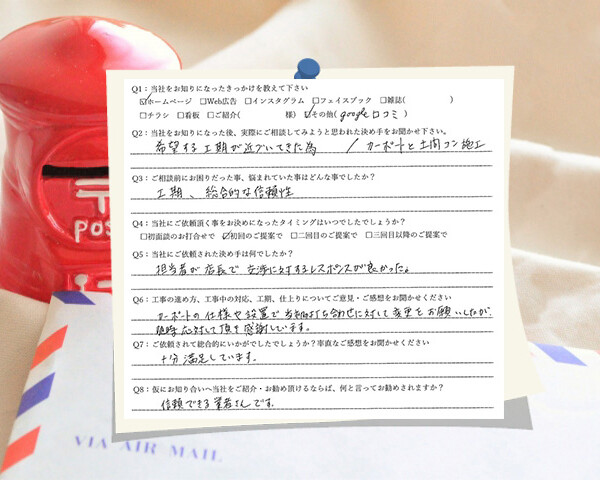 Q1：当社をお知りになったきっかけを教えて下さい
☑ホームページ □Web広告 □インスタグラム □フェイスブック □雑誌( )
□チラシ □看板 □ご紹介( 様) ☑その他(google口コミ)
Q2：当社をお知りになった後、実際にご相談してみようと思われた決め手をお聞かせ下さい。
希望する工期が近づいてきた為 / カーポートと土間コン施工
Q3：ご相談前にお困りだった事、悩まれていた事はどんな事でしたか？
工期、総合的な信頼性
Q4：当社にご依頼頂く事をお決めになったタイミングはいつでしたでしょうか？
□初面談のお打合せで ☑初回のご提案で □二回目のご提案で □三回目以降のご提案で
Q5：当社にご依頼された決め手は何でしたか？
担当者が店長で 交渉に対するレスポンスが良かった。
Q6：工事の進め方、工事中の対応、工期、仕上りについてご意見・ご感想をお聞かせください
カーポートの仕様や設置で 当初打ち合わせに対して変更をお願いしたが、
臨時応対して頂き感謝しています。
Q7：ご依頼されて総合的にいかがでしたでしょうか？率直なご感想をお聞かせください
十分満足しています。
Q8：仮にお知り合いへ当社をご紹介・お勧め頂けるならば、何と言ってお勧めされますか？
信頼できる業者さんです。
〒
POS
VIA AIR MAIL